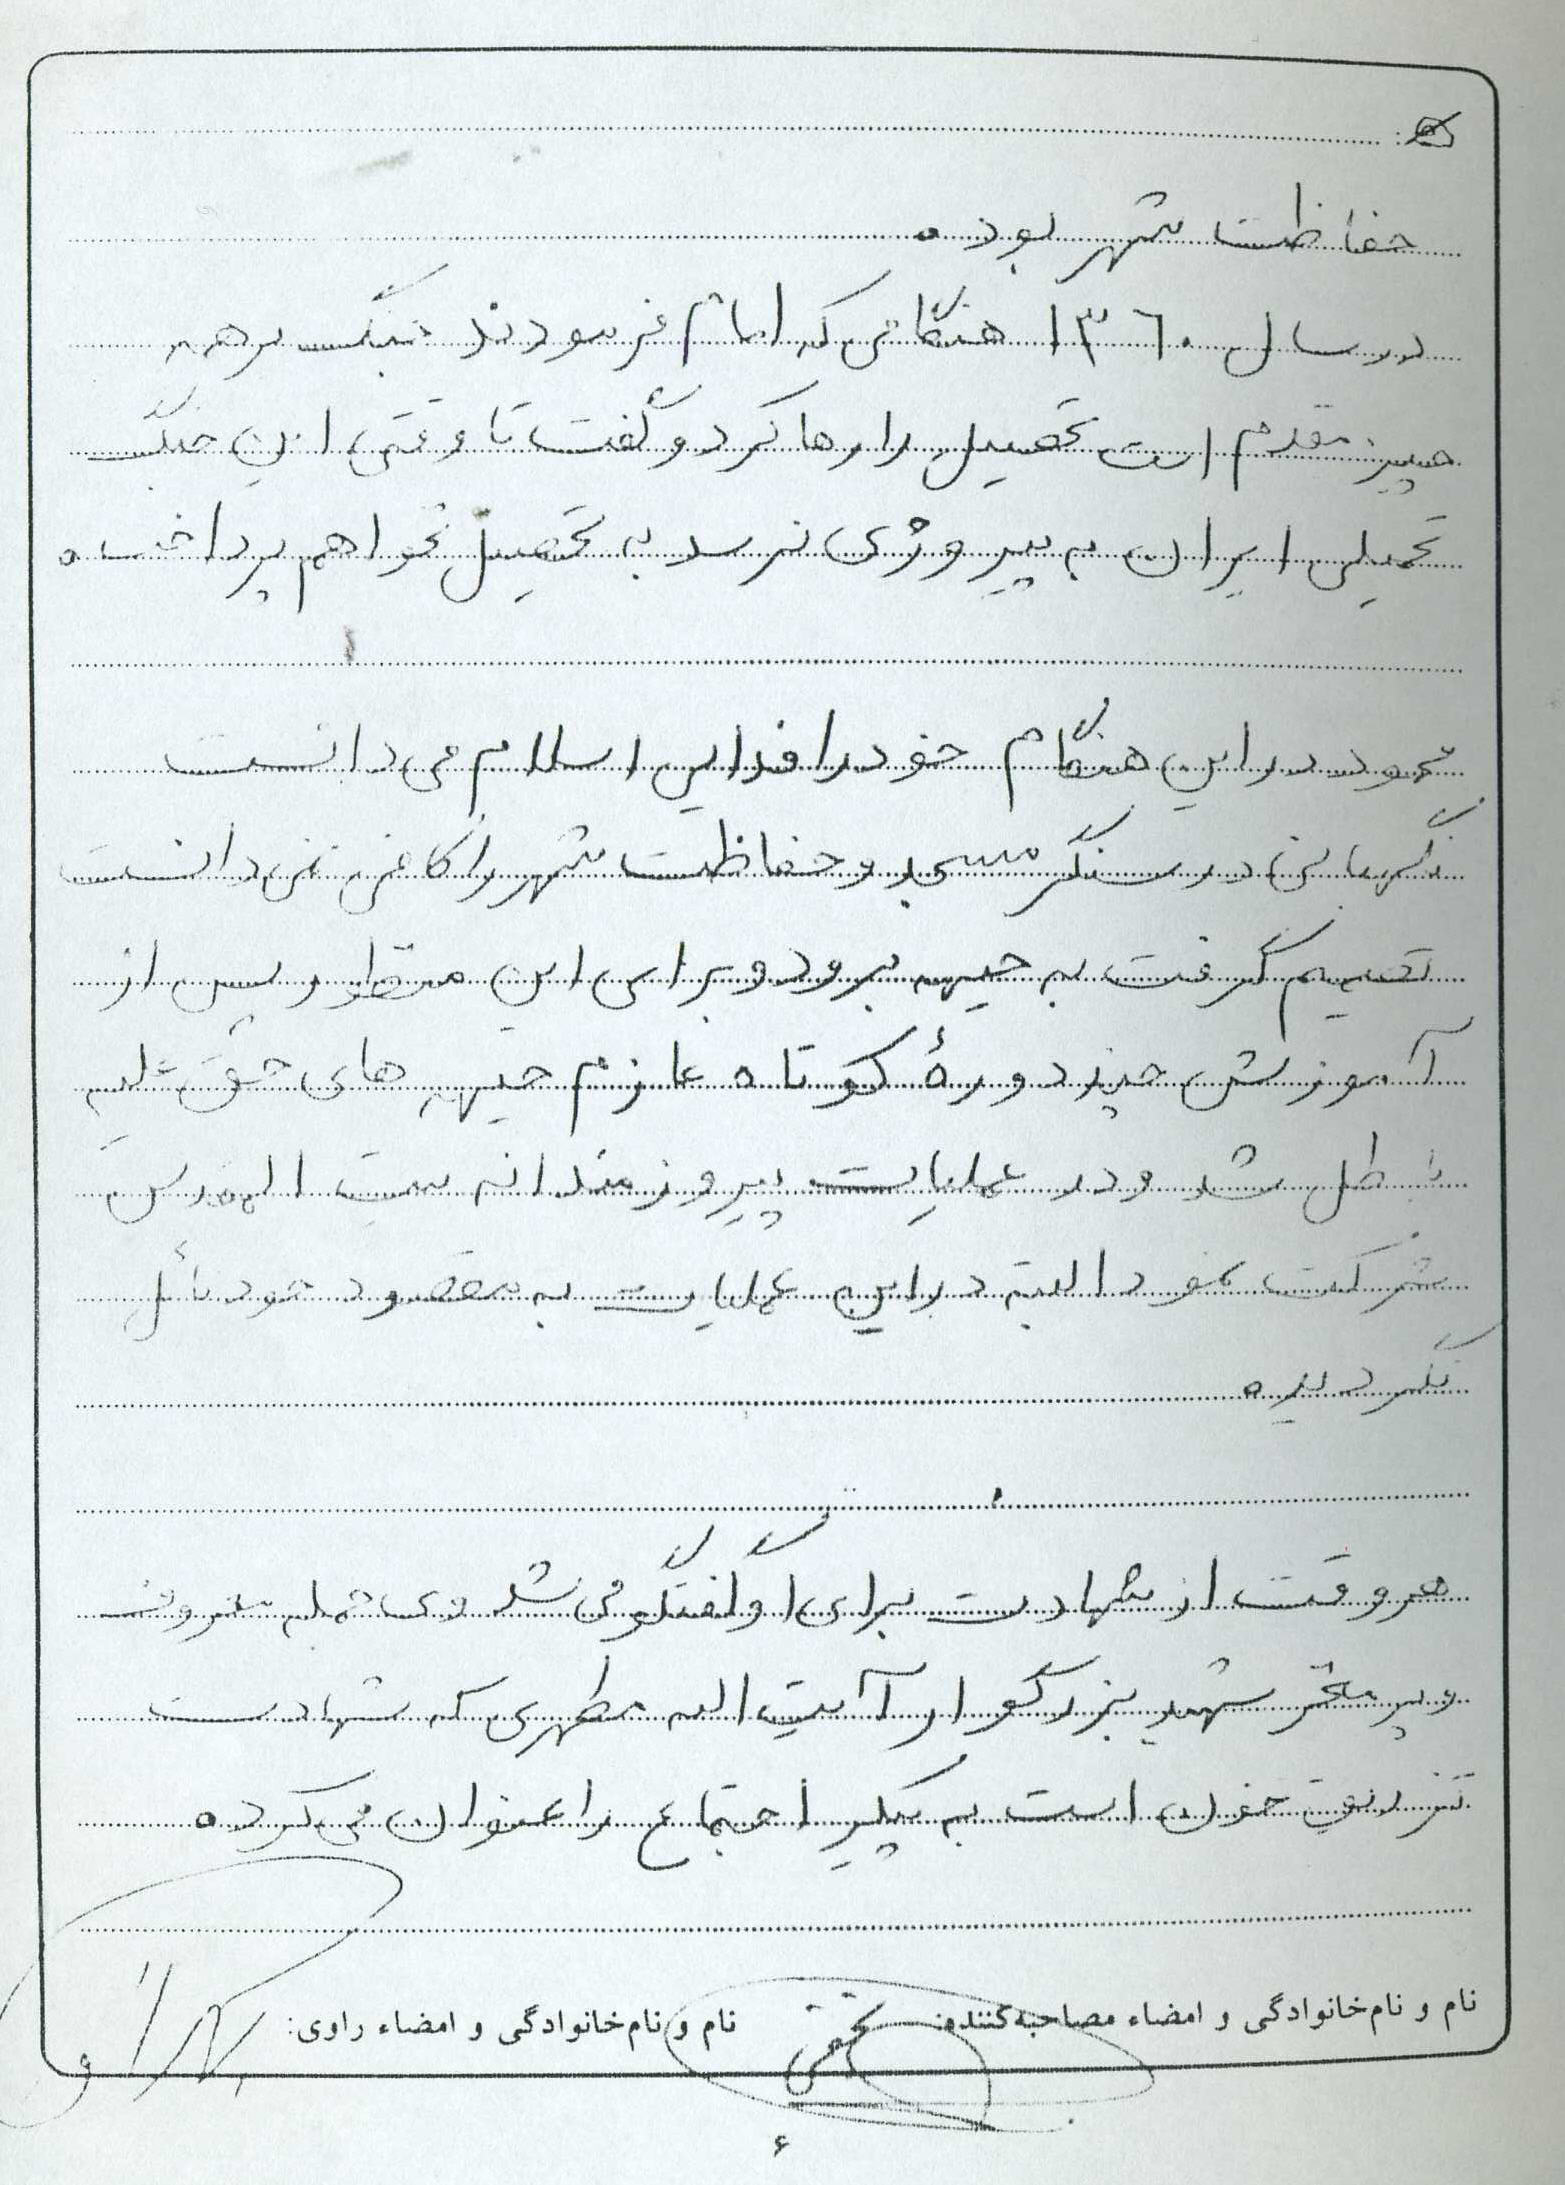 حفاظت شهر بود.
در سال ۱۳۶۰ هنگامی که امام فرمودند جنگ بر همه
چیز مقدم است تحصیل را رها کرد و گفت تا وقتی این جنگ
تحمیلی ایران به پیروزی نرسد به تحصیل نخواهم پرداخت.
محمود در این هنگام خود را فدایی اسلام می دانست
نگهبانی در سنگر مسجد و حفاظت شهر را کافی نمی دانست
تصمیم گرفت به جبهه برود و برای این منظور پس از
آموزش چند دورهٔ کوتاه عازم جبهه های حق علیه
باطل شد و در عملیات پیروزمندانه بیت المقدس
شرکت نمود البته در این عملیات به مقصود خود نائل
نگردید.
هر وقت از شهادت برای او گفتگو می شد وی جمله معروف
و پر مغز شهید بزرگوار آیت اله مطهری که شهادت
تزریق خون است به پیکر اجتماع را عنوان می کرد.
نام و نام‌خانوادگی و امضاء مصاحبه‌کننده: نام و نام‌خانوادگی و امضاء راوی:
۶